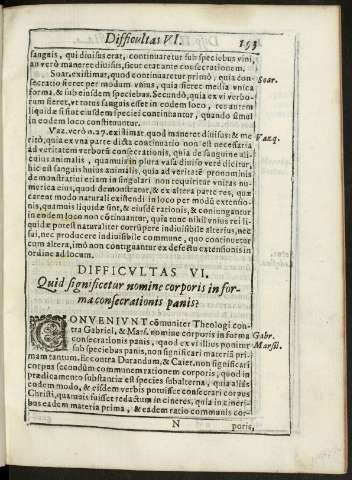 Difficultas VI. 193
sanguis, qui diuisus erat, continuaretur sub speciebus vini,
an verò maneret diuisus, sicut erat ante consecrationem.
Soar. existimat, quod continuaretur primò, quia con-
Soar.
secratio fieret per modum vnius, quia fieret media vnica
forma, & sub eiusdem speciebus. Secundò, quia ex vi verbo-
rum fieret, vt totus sanguis esset in eodem loco, res autem
liquidæ si sint eiusdem speciei continuantur, quando simul
in eodem loco constituuntur.
Vaz. verò n.27. existimat quod maneret diuisus: & me
Vazq.
ritò, quia ex vna parte dicta continuatio non est necessaria
ad veritatem verborũ consecrationis, quia de sanguine ali-
cuius animalis, quamuis in plura vasa diuiso verè dicitur,
hic est sanguis huius animalis, quia ad veritatẽ pronominis
demonstratiui etiam in singulari non requiritur vnitas nu-
merica eius, quod demonstratur, & ex altera parte res, quæ
carent modo naturali existendi in loco per modũ extensio-
nis, quamuis liquidæ sint, & eiusdẽ rationis, & coniungantur
in eodem loco non cõtinuantur, quia tunc nihil vnius rei li-
quidæ potest naturaliter corrũpere indiuisibile alterius, nec
sui, nec producere indiuisibile commune, quo continuetur
cum altera, imò non contiguantur ex defectu extensionis in
ordine ad locum.
DIFFICVLTAS VI.
Quid significetur nomine corporis in for-
ma consecrationis panis?
CONVENIVNT cõmuniter Theologi con-
tra Gabriel, & Mars. nomine corporis in forma
Gabr.
consecrationis panis, quod ex vi illius ponitur
Marsil.
sub speciebus panis, non significari materiã pri-
mam tantum. Et contra Durandum, & Caiet. non significari
corpus secundùm communem rationem corporis, quod in
prædicamento substantiæ est species subalterna, quia aliàs
eodem modo, & eisdem verbis potuisset consecrari corpus
Christi, quamuis fuisset redactum in cineres, quia in cineri-
bus eadem materia prima, & eadem ratio communis cor-
N poris,